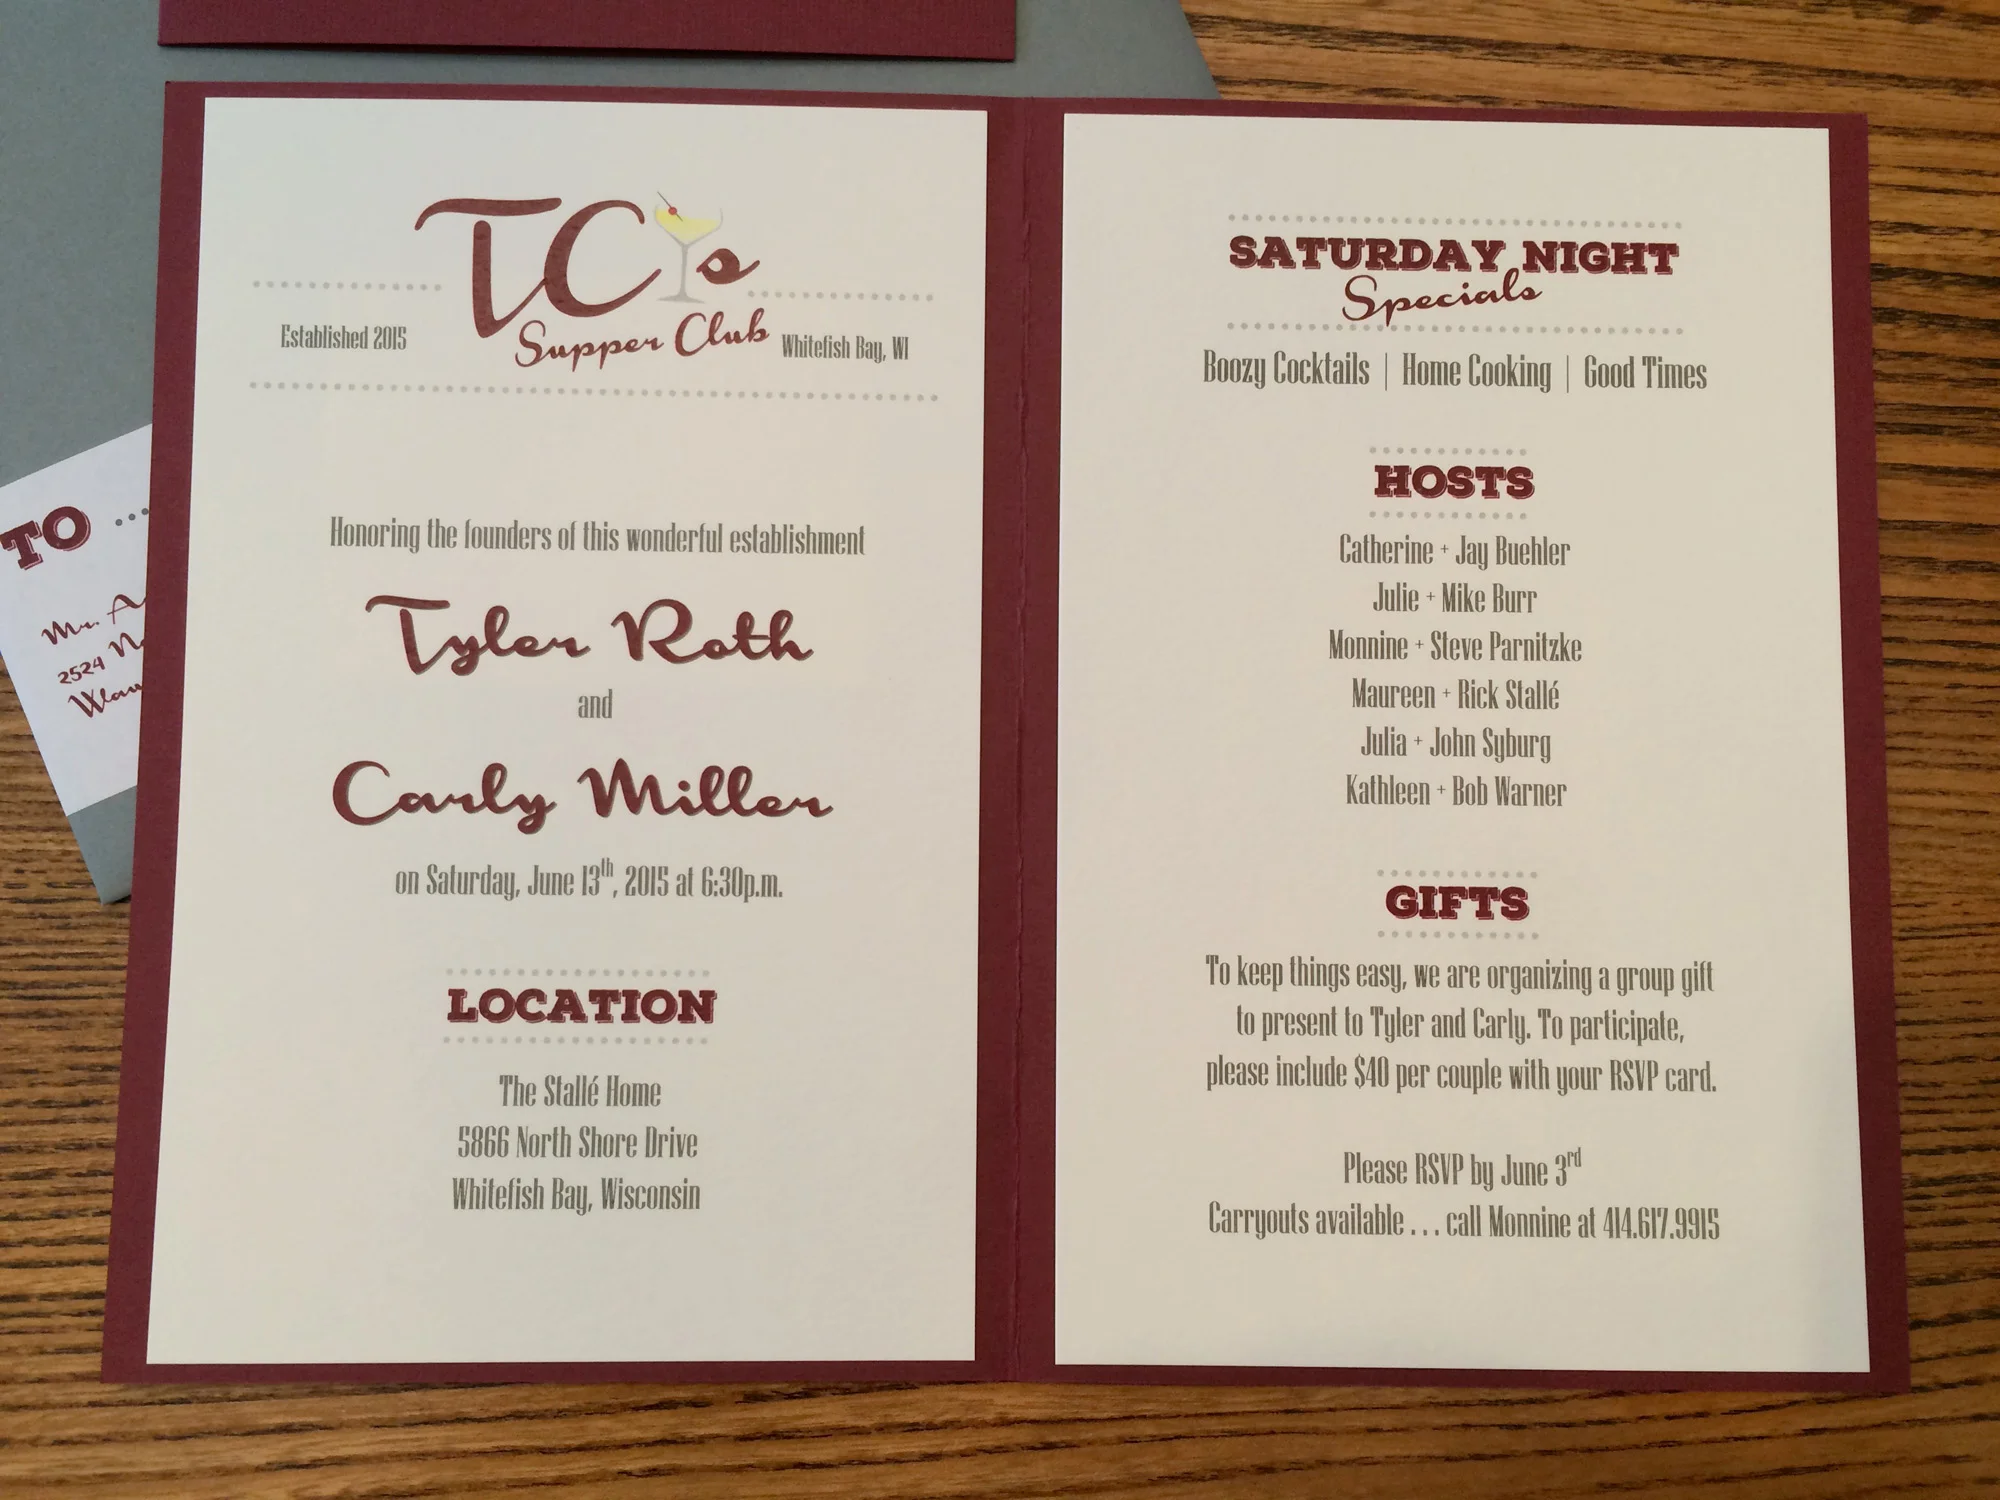 TC's
Supper Club
Established 2015
Whitefish Bay, WI
Honoring the founders of this wonderful establishment
Tyler Roth
and
Carly Miller
on Saturday, June 13th, 2015 at 6:30p.m.
LOCATION
The Stallé Home
5866 North Shore Drive
Whitefish Bay, Wisconsin
SATURDAY NIGHT
Specials
Boozy Cocktails | Home Cooking | Good Times
HOSTS
Catherine + Jay Buehler
Julie + Mike Burr
Monnine + Steve Parnitzke
Maureen + Rick Stallé
Julia + John Syburg
Kathleen + Bob Warner
GIFTS
To keep things easy, we are organizing a group gift
to present to Tyler and Carly. To participate,
please include $40 per couple with your RSVP card.
Please RSVP by June 3rd
Carryouts available . . . call Monnine at 414.617.9915
TO
Mr.
2524